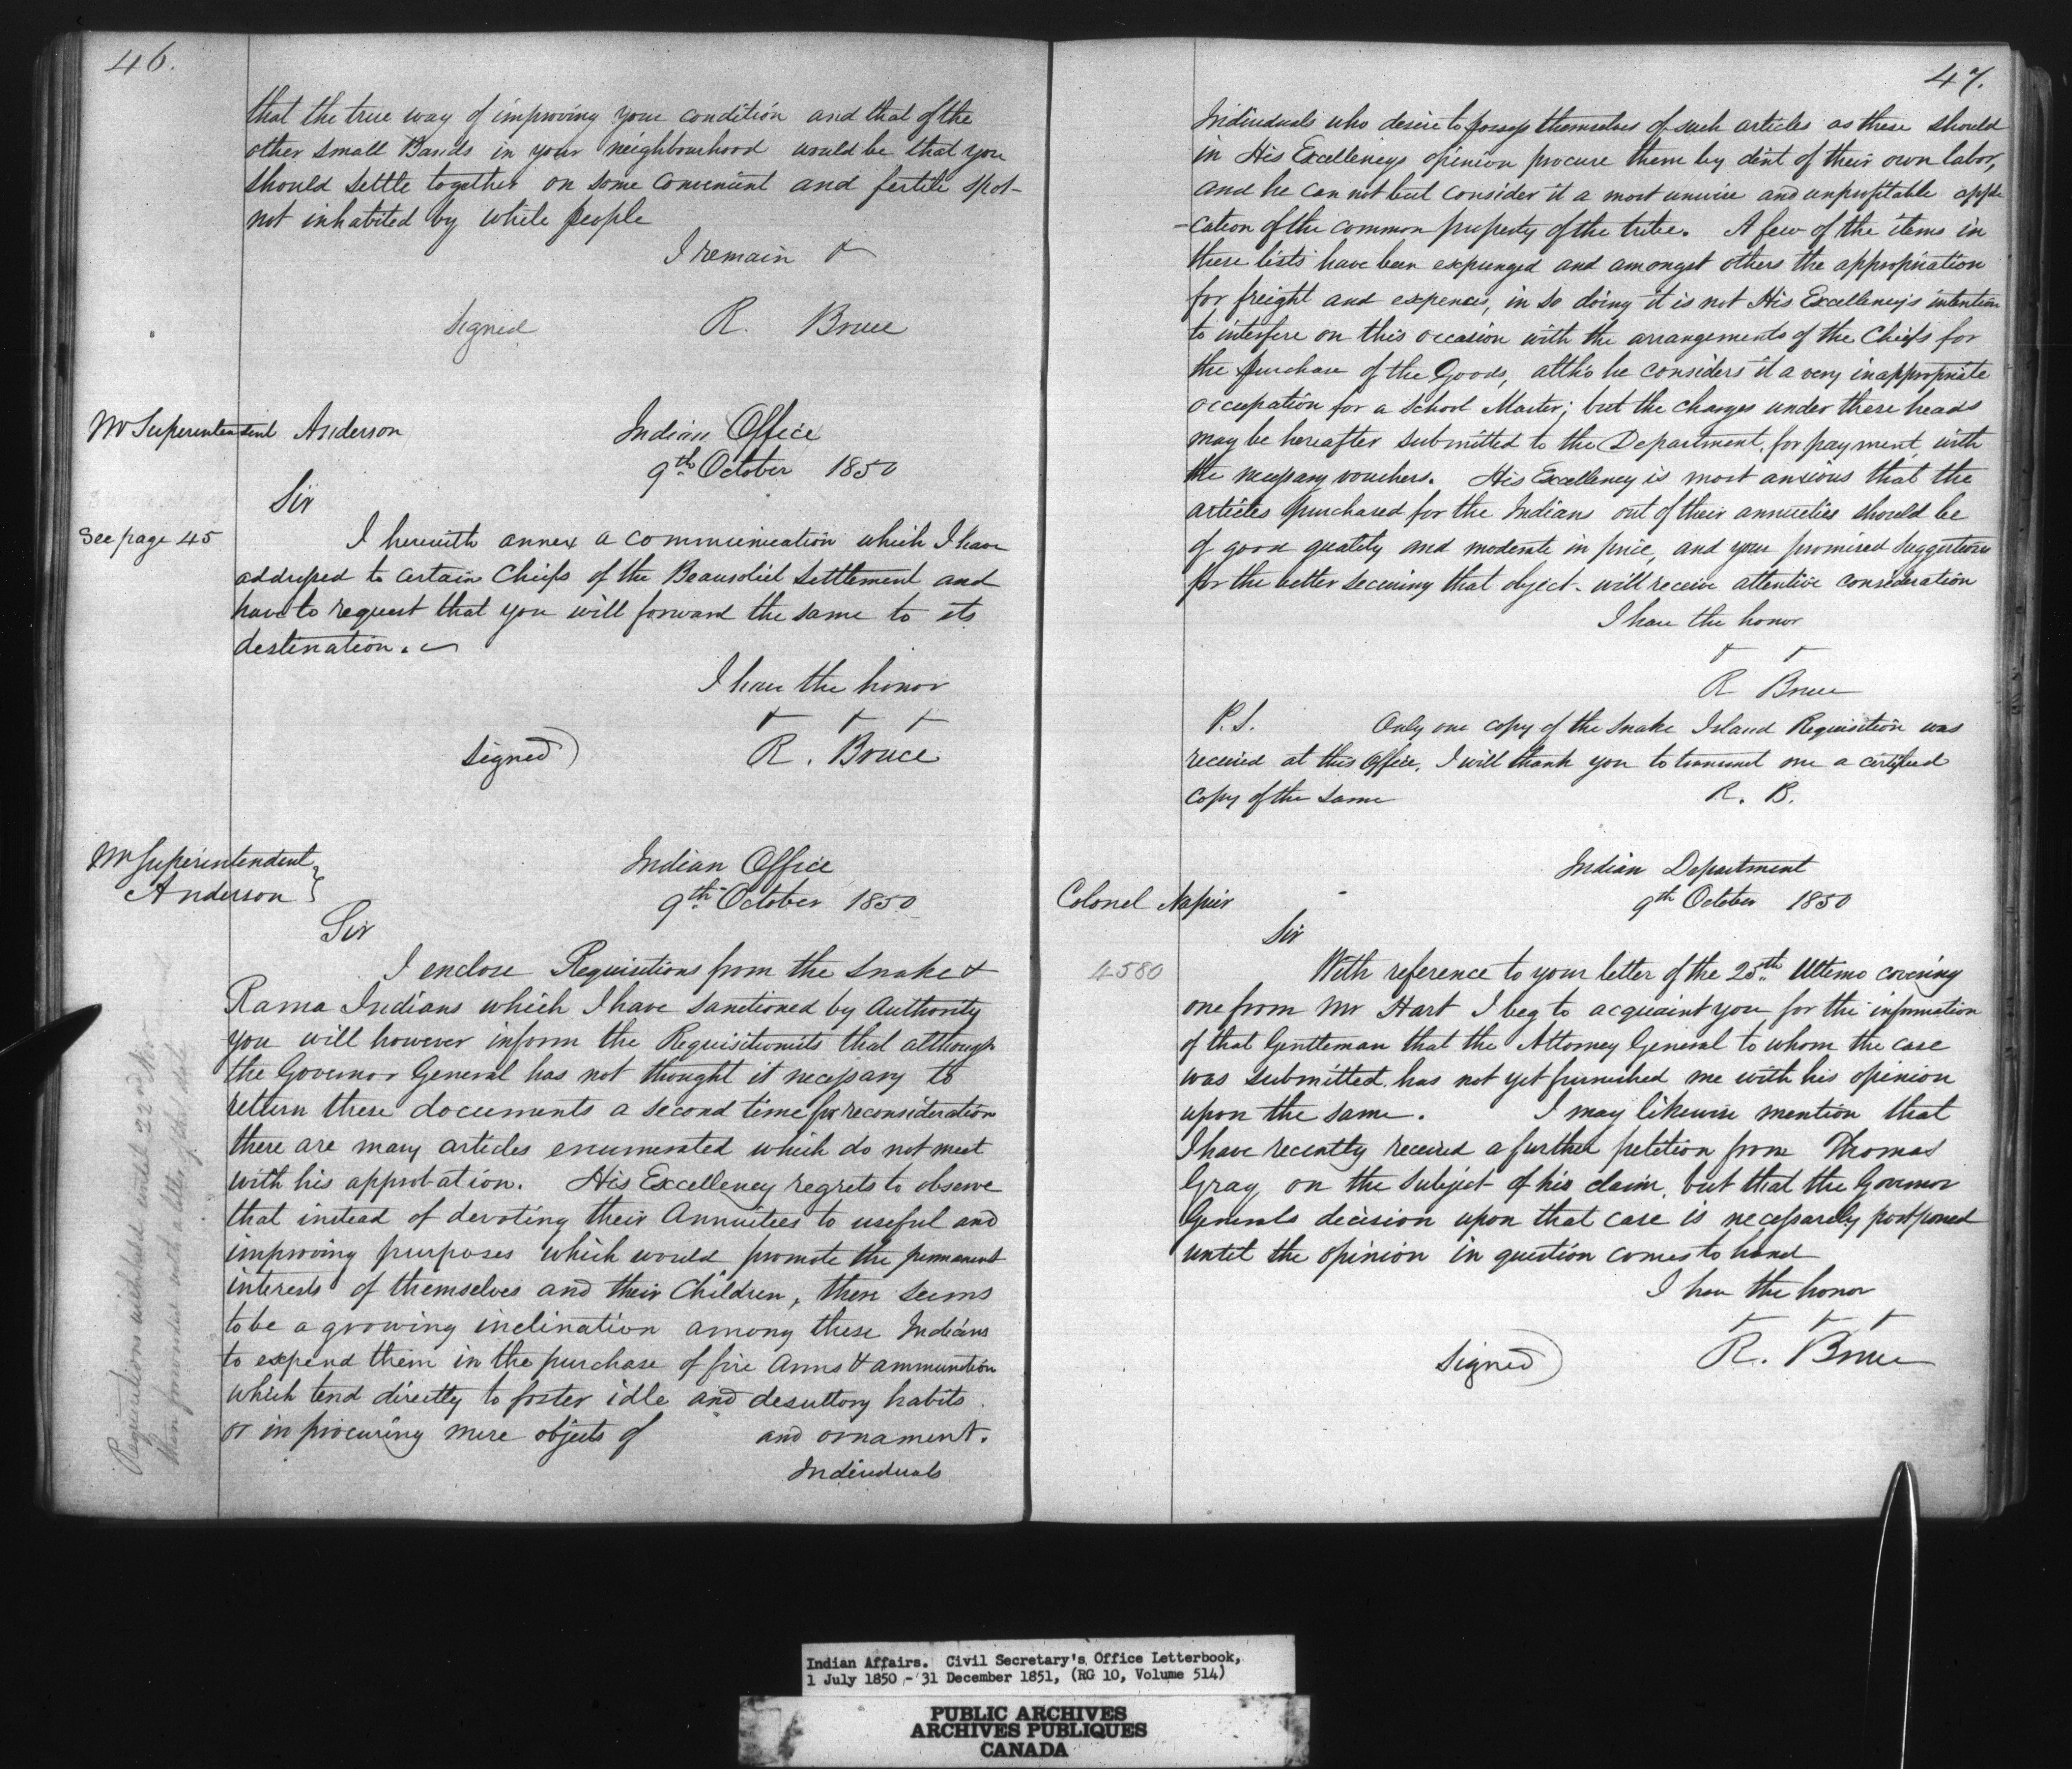 46.
that the true way of improving your condition and that of the
other small Bands in your neighbourhood would be that you
should settle together on some convenient and fertile spot
not inhabited by white people
I remain &
Signed R. Bruce
Mr Superintendent Anderson
Indian Office
9th October 1850
Sir
See page 45
I herewith annex a communication which I have
addressed to certain Chiefs of the Beausoliel Settlement and
have to request that you will forward the same to its
destination.
I have the honor
& & &
Signed) R. Bruce
Mr Superintendent
Anderson }
Indian Office
9th October 1850
Sir
I enclose Requisitions from the Snake &
Rama Indians which I have sanctioned by Authority
you will however inform the Requisitionists that although
the Governor General has not thought it necessary to
return these documents a second time for reconsideration
there are many articles enumerated which do not meet
with his approbation. His Excellency regrets to observe
that instead of devoting their Annuitees to useful and
improving purposes which would promote the permanent
interests of themselves and their Children, there seems
to be a growing inclination among these Indians
to expend them in the purchase of fire Arms & ammunition
which tend directly to foster idle and desultory habits
or in procuring mere objects of and ornament.
Individuals
Requisitions withheld until 22nd Nov
then forwarded with a letter of that date
47.
Individuals who desire to possess themselves of such articles as these should
in His Excellencys opinion procure them by dint of their own labor,
and he can not but consider it a most unwise and unprofitable appli
-cation of the common property of the tribe. A few of the items in
these lists have been expunged and amongst others the appropriation
for freight and expences, in so doing it is not His Excellency's intention
to interfere on this occasion with the arrangements of the Chiefs for
the purchase of the Goods, altho he considers it a very inappropriate
occupation for a School Master; but the charges under these heads
may be hereafter submitted to the Department, for payment, with
the necessary vouchers. His Excellency is most anxious that the
articles purchased for the Indians out of their annuities should be
of good quality and moderate in price, and your promised suggestions
for the better securing that object will receive attentive consideration
I have the honor
& &
R Bruce
P.S. Only one copy of the Snake Island Requisition was
received at this Office, I will thank you to transmit me a certified
copy of the same
R. B.
Indian Department
9th October 1850
Colonel Napier
Sir
4580
With reference to your letter of the 25th Ultimo covering
one from Mr Hart I beg to acquaint you for the information
of that Gentleman that the Attorney General to whom the case
was submitted, has not yet furnished me with his opinion
upon the same. I may likewise mention that
I have recently received a further petition from Thomas
Gray on the Subject of his claim, but that the Governor
Generals decision upon that case is necessarely postponed
until the opinion in question comes to hand
I have the honor
& & &
Signed) R. Bruce
Indian Affairs. Civil Secretary's Office Letterbook,
1 July 1850 - 31 December 1851, (RG 10, Volume 514)
PUBLIC ARCHIVES
ARCHIVES PUBLIQUES
CANADA